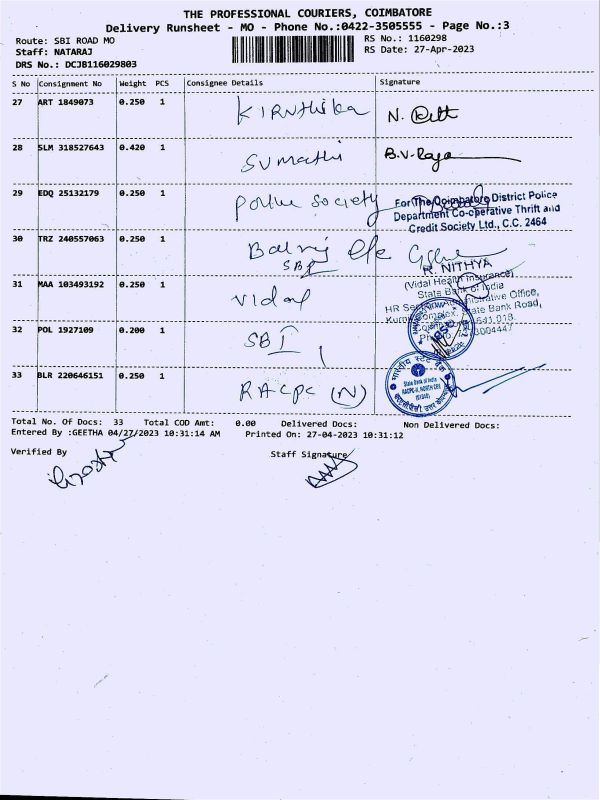 THE PROFESSIONAL COURIERS, COIMBATORE
Delivery Runsheet - MO - Phone No.:0422-3505555 - Page No.:3
Route: SBI ROAD MO
RS No.: 1160298
Staff: NATARAJ
RS Date: 27-Apr-2023
DRS No.: DCJB116029803
S No Consignment No Weight PCS Consignee Details Signature
27 ART 1849073 0.250 1 Kiruthika N.
28 SLM 318527643 0.420 1 Sumathi B.V. Raja
29 EDQ 25132179 0.250 1 Police Society
For The Coimbatore District Police
Department Co-operative Thrift and
Credit Society Ltd., C.C. 2464
30 TRZ 240557063 0.250 1
SBI
R. NITHYA
(Vidal Health Insurance)
State Bank of India
31 MAA 103493192 0.250 1 Vidal
HR Administrative Office,
State Bank Road,
32 POL 1927109 0.200 1 SBI
33 BLR 220646151 0.250 1 RACPC (N)
भारतीय स्टेट बैंक
State Bank of India
Total No. Of Docs: 33 Total COD Amt: 0.00 Delivered Docs: Non Delivered Docs:
Entered By :GEETHA 04/27/2023 10:31:14 AM Printed On: 27-04-2023 10:31:12
Verified By Staff Signature